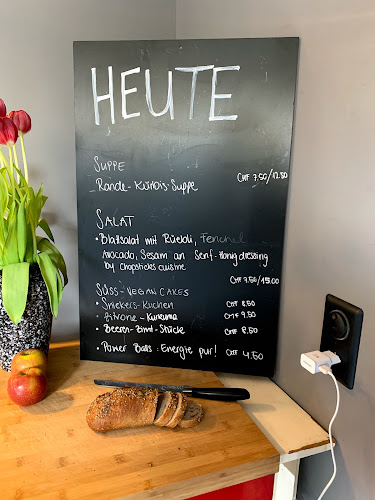 HEUTE
SUPPE
Rande-Kürbis-Suppe CHF 7.50/12.50
SALAT
• Blattsalat mit Rüebli, Fenchel
Avocado, Sesam an Senf-Honigdressing
by Chopsticks cuisine
CHF 7.50/15.00
SÜSS-VEGAN CAKES
• Snickers-Kuchen CHF 8.50
• Zitrone-Kurkuma CHF 9.50
• Beeren-Zimt-Stücke CHF 8.50
• Power Balls: Energie pur! CHF 4.50